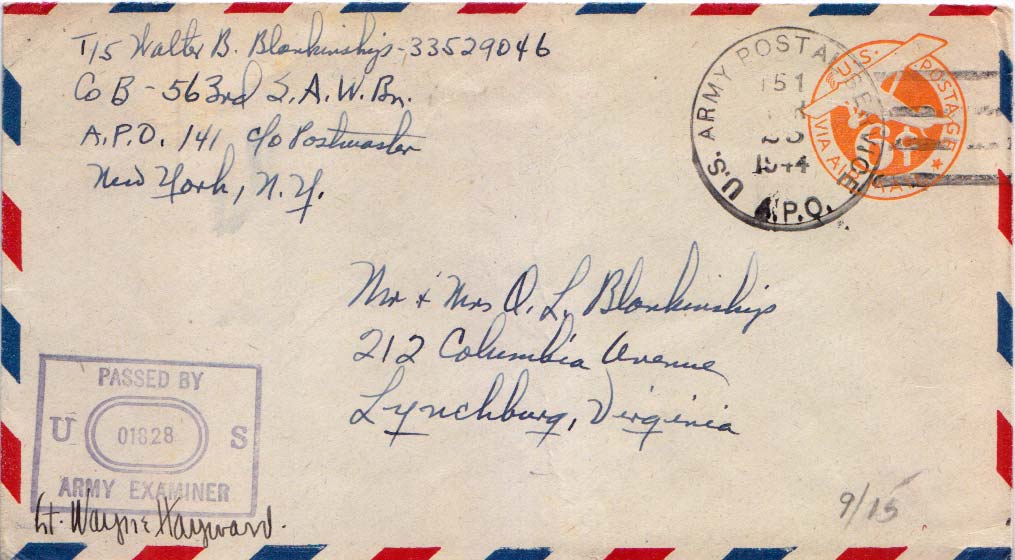 T/5 Walter B. Blankinship-33529046
Co B - 563rd S.A.W.Bn.
A.P.O. 141 c/o Postmaster
New York, N.Y.
U.S. ARMY POSTAL SERVICE
151
1944
A.P.O.
U.S. POSTAGE
6¢
VIA AIR MAIL
Mr + Mrs O. L. Blankinship
212 Columbia Avenue
Lynchburg, Virginia
PASSED BY
U 01828 S
ARMY EXAMINER
Lt. Wayne Hayward.
9/15